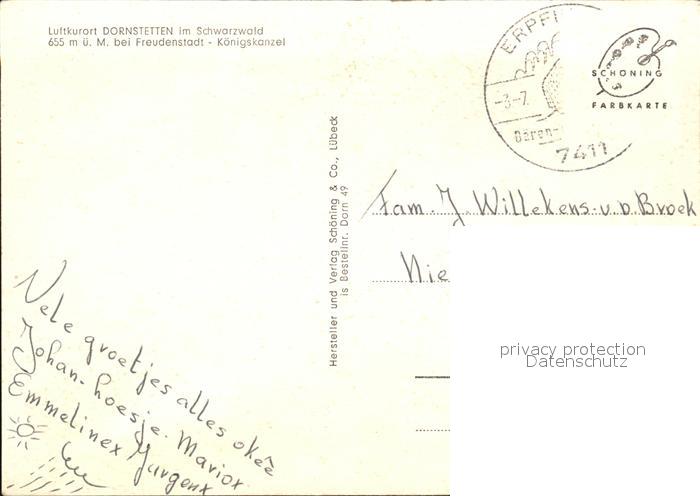 Luftkurort DORNSTETTEN im Schwarzwald
655 m ü. M. bei Freudenstadt - Königskanzel
ERPFI
-3-7.
Bären-
7411
SCHÖNING
FARBKARTE
Hersteller und Verlag Schöning & Co., Lübeck
is Bestellnr. Dorn 49
Fam. J. Willekens-v.d. Broek
Nie
privacy protection
Datenschutz
Vele groetjes alles okée
Johan-hoesje. Mariox
Emmelinex Jurgenx